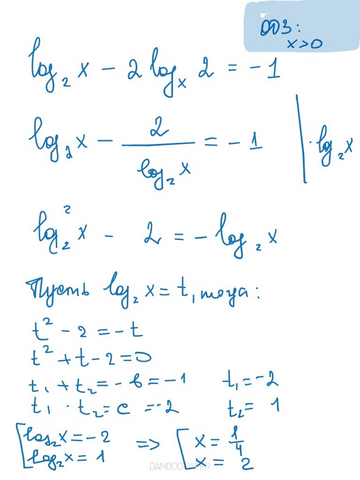 ОДЗ:
x>0
log₂x - 2 logₓ2 = -1
log₂x - 2/log₂x = -1 | · log₂x
log₂²x - 2 = -log₂x
Пусть log₂x = t, тогда:
t² - 2 = -t
t² + t - 2 = 0
t₁ + t₂ = -b = -1 t₁ = -2
t₁ · t₂ = c = -2 t₂ = 1
[log₂x = -2 => [x = 1/4
log₂x = 1 x = 2